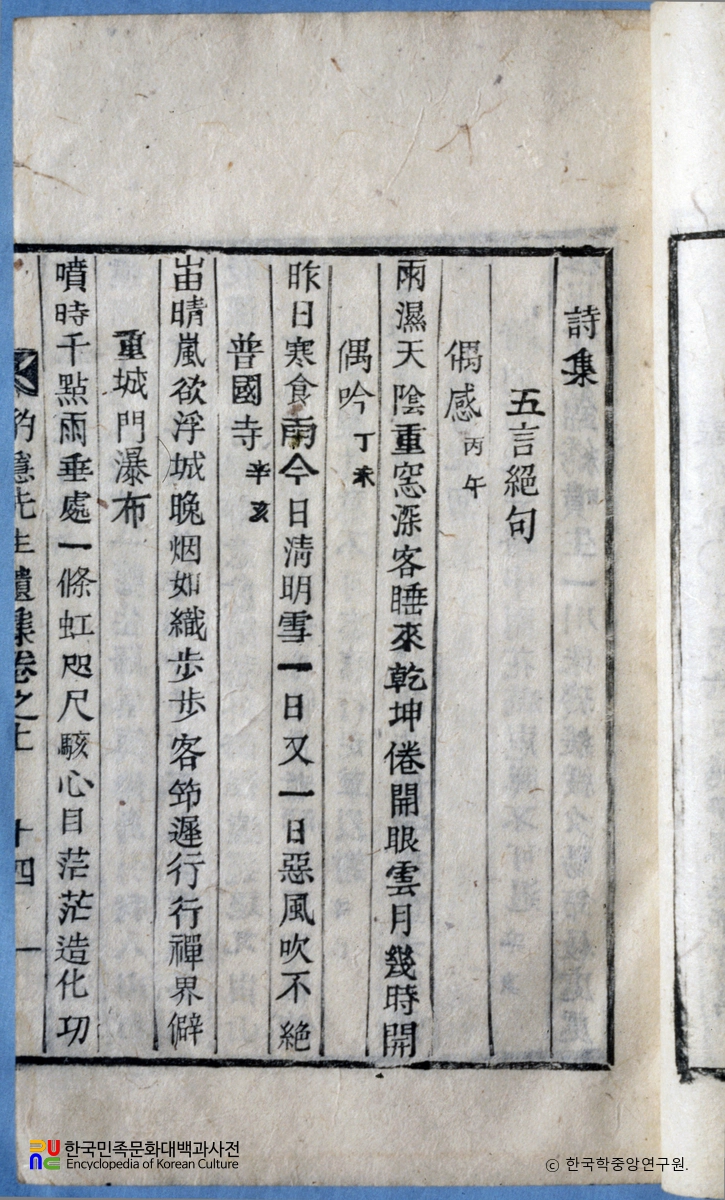 詩集
五言絕句
偶感 丙午
雨濕天陰重窓深客睡來乾坤倦開眼雲月幾時開
偶吟 丁未
昨日寒食雨今日淸明雪一日又一日惡風吹不絕
普國寺 辛亥
宙晴嵐欲浮城晚烟如織步步客笻遲行行禪界僻
重城門瀑布
噴時千點雨垂處一條虹咫尺駭心目茫茫造化功
豹隱先生遺集卷之上 十四 一
한국민족문화대백과사전
Encyclopedia of Korean Culture
ⓒ 한국학중앙연구원.